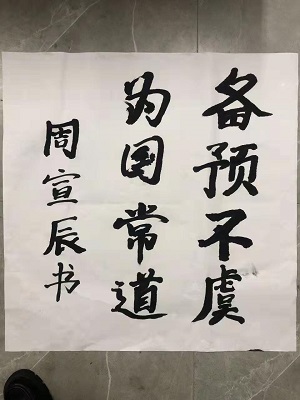 备预不虞
为国常道
周宣辰书